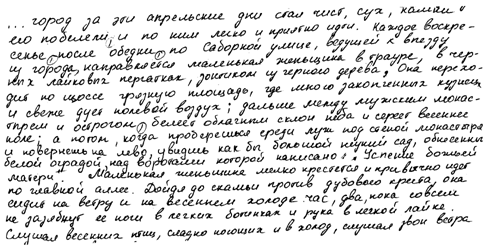 ... город за эти апрельские дни стал чист, сух, камни
его побелели и по ним легко и приятно идти. Каждое воскре-
сенье после обедни по Соборной улице, ведущей к выезду
из города, направляется маленькая женщина в трауре, в чер-
ных лайковых перчатках, зонтиком из черного дерева. Она перехо-
дит по шоссе грязную площадь, где много закопченных кузниц
и свежо дует полевой воздух; дальше между мужским монас-
тырем и острогом белеет облачный склон неба и сереет весеннее
поле, а потом, когда проберешься среди луж под стеной монастыря
и повернешь на лево, увидишь как бы большой низкий сад, обнесенный
белой оградой, над воротами которой написано: "Успение божьей
матери". Маленькая женщина мелко крестится и привычно идет
по главной аллее. Дойдя до скамьи против дубового креста, она
сидит на ветру и на весеннем холоде час, два, пока совсем
не зазябнут ее ноги в легких ботинках и рука в легкой лайке.
Слушая весенних птиц, сладко поющих и в холод, слушая звон ветра